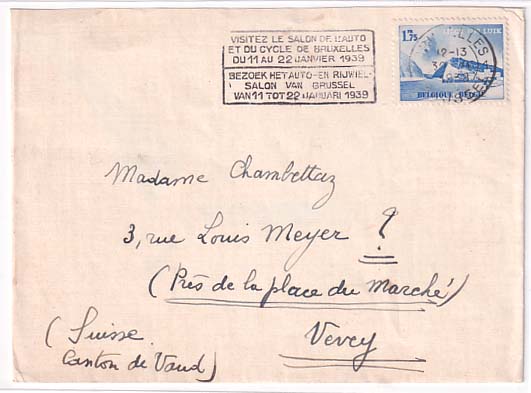 VISITEZ LE SALON DE L'AUTO
ET DU CYCLE DE BRUXELLES
DU 11 AU 22 JANVIER 1939
BEZOEK HET AUTO-EN RIJWIEL-
SALON VAN BRUSSEL
VAN 11 TOT 22 JANUARI 1939
1.75
LUIK
12-13
BELGIQUE
Madame Chambettaz
3, rue Louis Meyer ?
(Près de la place du Marché)
Vevey
(Suisse
Canton de Vaud)